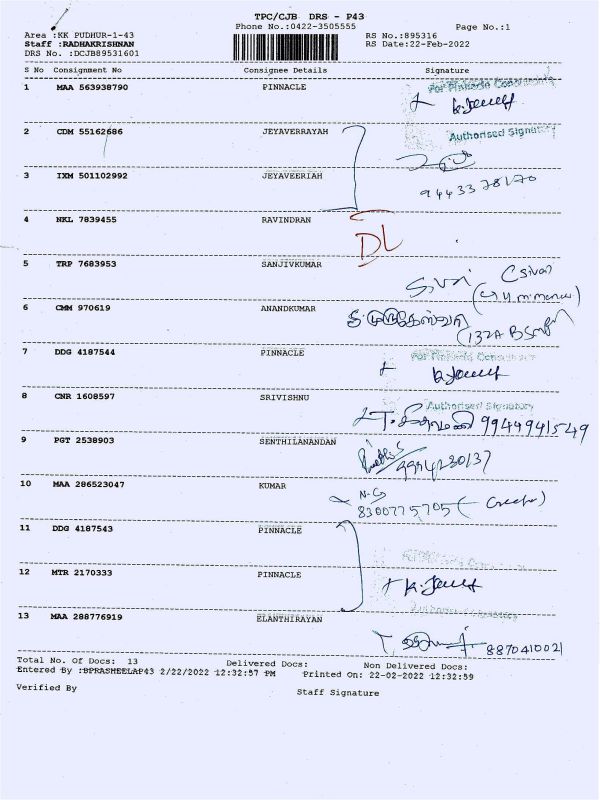 TPC/CJB DRS - P43
Phone No.:0422-3505555
Page No.:1
Area :KK PUDHUR-1-43
RS No.:895316
Staff :RADHAKRISHNAN
RS Date:22-Feb-2022
DRS No. :DCJB89531601
S No Consignment No Consignee Details Signature
1 MAA 563938790 PINNACLE
Authorised Signatory
2 CDM 55162686 JEYAVERRAYAH
3 IXM 501102992 JEYAVEERIAH
9443378170
4 NKL 7839455 RAVINDRAN
DL
5 TRP 7683953 SANJIVKUMAR
Sivan
6 CMM 970619 ANANDKUMAR
7 DDG 4187544 PINNACLE
Authorised Signatory
8 CNR 1608597 SRIVISHNU
9944941549
9 PGT 2538903 SENTHILANANDAN
10 MAA 286523047 KUMAR
8300775705
11 DDG 4187543 PINNACLE
12 MTR 2170333 PINNACLE
13 MAA 288776919 ELANTHIRAYAN
8870410021
Total No. Of Docs: 13 Delivered Docs: Non Delivered Docs:
Entered By :BPRASHEELAP43 2/22/2022 12:32:57 PM Printed On: 22-02-2022 12:32:59
Verified By
Staff Signature